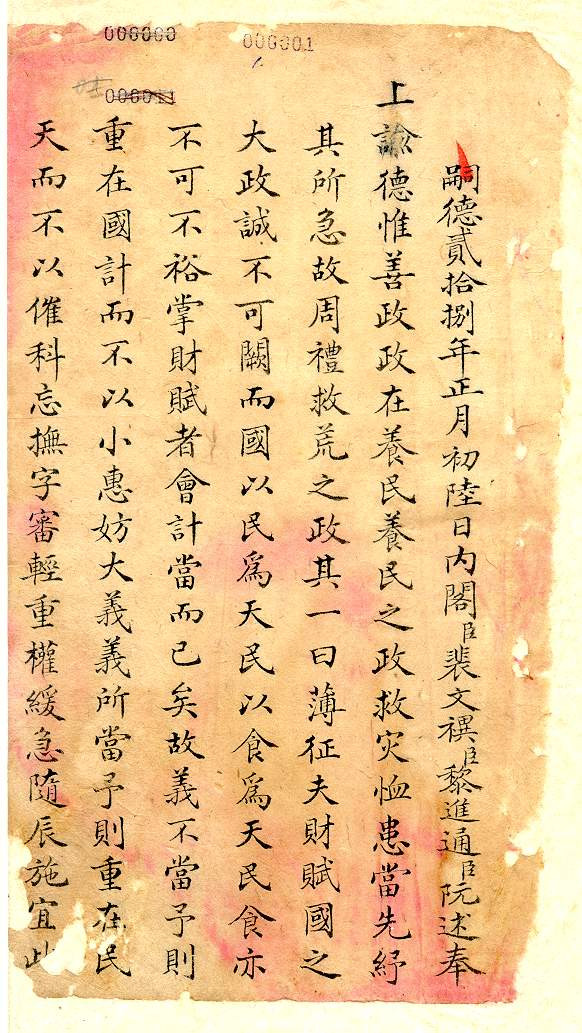 000000
000001
000011
嗣德貳拾捌年正月初陸日內閣臣裴文禩臣黎進通臣阮述奉
上諭德惟善政政在養民養民之政救灾恤患當先紓
其所急故周禮救荒之政其一曰薄征夫財賦國之
大政誠不可闕而國以民爲天民以食爲天民食亦
不可不裕掌財賦者會計當而已矣故義不當予則
重在國計而不以小惠妨大義義所當予則重在民
天而不以催科忘撫字審輕重權緩急隨辰施宜此